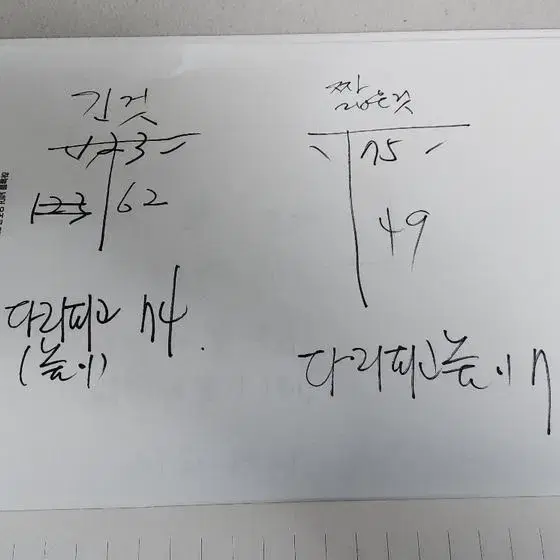 긴것
123
123 62
다리피고 74
(높이)
짧은것
75
49
다리피고높이 7